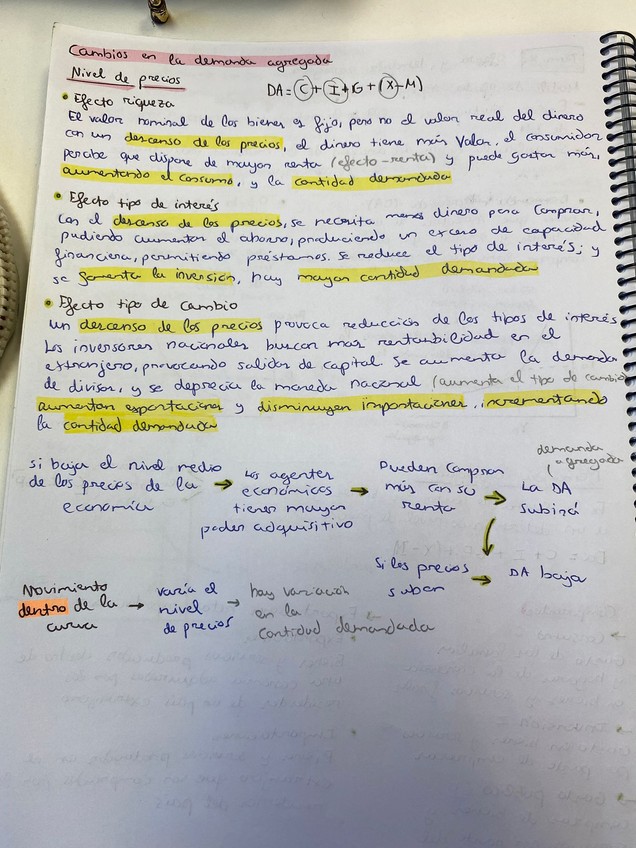 Cambios en la demanda agregada
Nivel de precios
DA = C + I + G + (X - M)
• Efecto riqueza
El valor nominal de los bienes es fijo, pero no el valor real del dinero
con un descenso de los precios, el dinero tiene más valor, el consumidor
percibe que dispone de mayor renta (efecto-renta) y puede gastar más,
aumentando el consumo, y la cantidad demandada
• Efecto tipo de interés
Con el descenso de los precios, se necesita menos dinero para comprar,
pudiendo aumentar el ahorro, produciendo un exceso de capacidad
financiera, permitiendo préstamos. Se reduce el tipo de interés; y
se fomenta la inversión, hay mayor cantidad demandada
• Efecto tipo de cambio
Un descenso de los precios provoca reducción de los tipos de interés
Los inversores nacionales buscan más rentabilidad en el
extranjero, provocando salidas de capital. Se aumenta la demanda
de divisas, y se deprecia la moneda nacional (aumenta el tipo de cambio)
aumentan exportaciones y disminuyen importaciones, incrementando
la cantidad demandada
demanda
agregada
Si baja el nivel medio
de los precios de la
economía
→ Los agentes
económicos
tienen mayor
poder adquisitivo
→ Pueden comprar
más con su
renta
→ La DA
subirá
Si los precios
suben
→ DA baja
Movimiento
dentro de la
curva
→ varía el
nivel
de precios
→ hay variación
en la
cantidad demandada